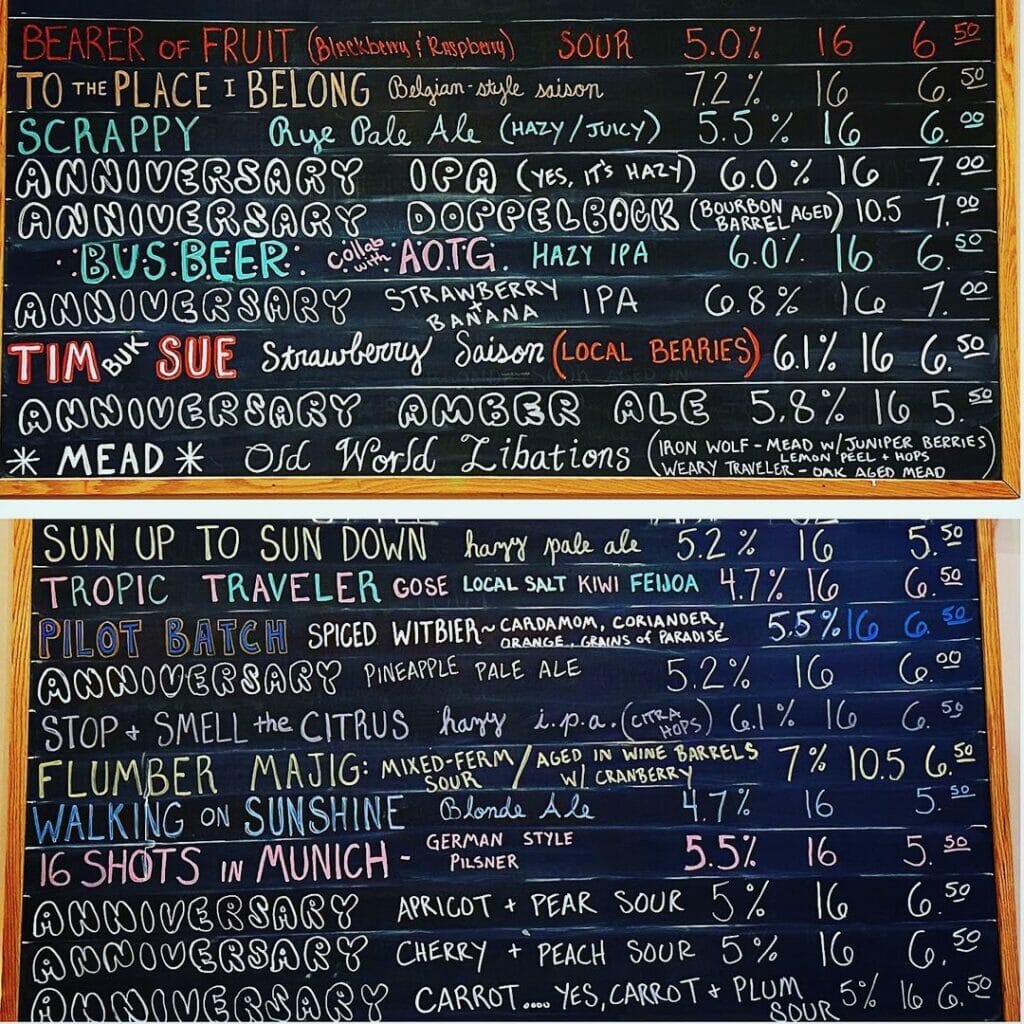 BEARER OF FRUIT (Blackberry & Raspberry) SOUR 5.0% 16 6 50
TO THE PLACE I BELONG Belgian-style saison 7.2% 16 6.50
SCRAPPY Rye Pale Ale (HAZY/JUICY) 5.5% 16 6.00
ANNIVERSARY IPA (YES, IT'S HAZY) 6.0% 16 7.00
ANNIVERSARY DOPPELBOCK (BOURBON BARREL AGED) 10.5 7.00
BUS BEER collab with A.O.T.G. HAZY IPA 6.0% 16 6.50
ANNIVERSARY STRAWBERRY + BANANA IPA 6.8% 16 7.00
TIM BUK SUE Strawberry Saison (LOCAL BERRIES) 6.1% 16 6.50
ANNIVERSARY AMBER ALE 5.8% 16 5.50
* MEAD * Old World Libations (IRON WOLF - MEAD W/ JUNIPER BERRIES LEMON PEEL + HOPS
WEARY TRAVELER - OAK AGED MEAD)
SUN UP TO SUN DOWN hazy pale ale 5.2% 16 5.50
TROPIC TRAVELER GOSE LOCAL SALT KIWI FEIJOA 4.7% 16 6.50
PILOT BATCH SPICED WITBIER~ CARDAMOM, CORIANDER, ORANGE, GRAINS of PARADISE 5.5% 16 6.50
ANNIVERSARY PINEAPPLE PALE ALE 5.2% 16 6.00
STOP + SMELL the CITRUS hazy i.p.a. (CITRA HOPS) 6.1% 16 6.50
FLUMBER MAJIG: MIXED-FERM SOUR / AGED IN WINE BARRELS W/ CRANBERRY 7% 10.5 6.50
WALKING ON SUNSHINE Blonde Ale 4.7% 16 5.50
16 SHOTS IN MUNICH - GERMAN STYLE PILSNER 5.5% 16 5.50
ANNIVERSARY APRICOT + PEAR SOUR 5% 16 6.50
ANNIVERSARY CHERRY + PEACH SOUR 5% 16 6.50
ANNIVERSARY CARROT.... YES, CARROT + PLUM SOUR 5% 16 6.50